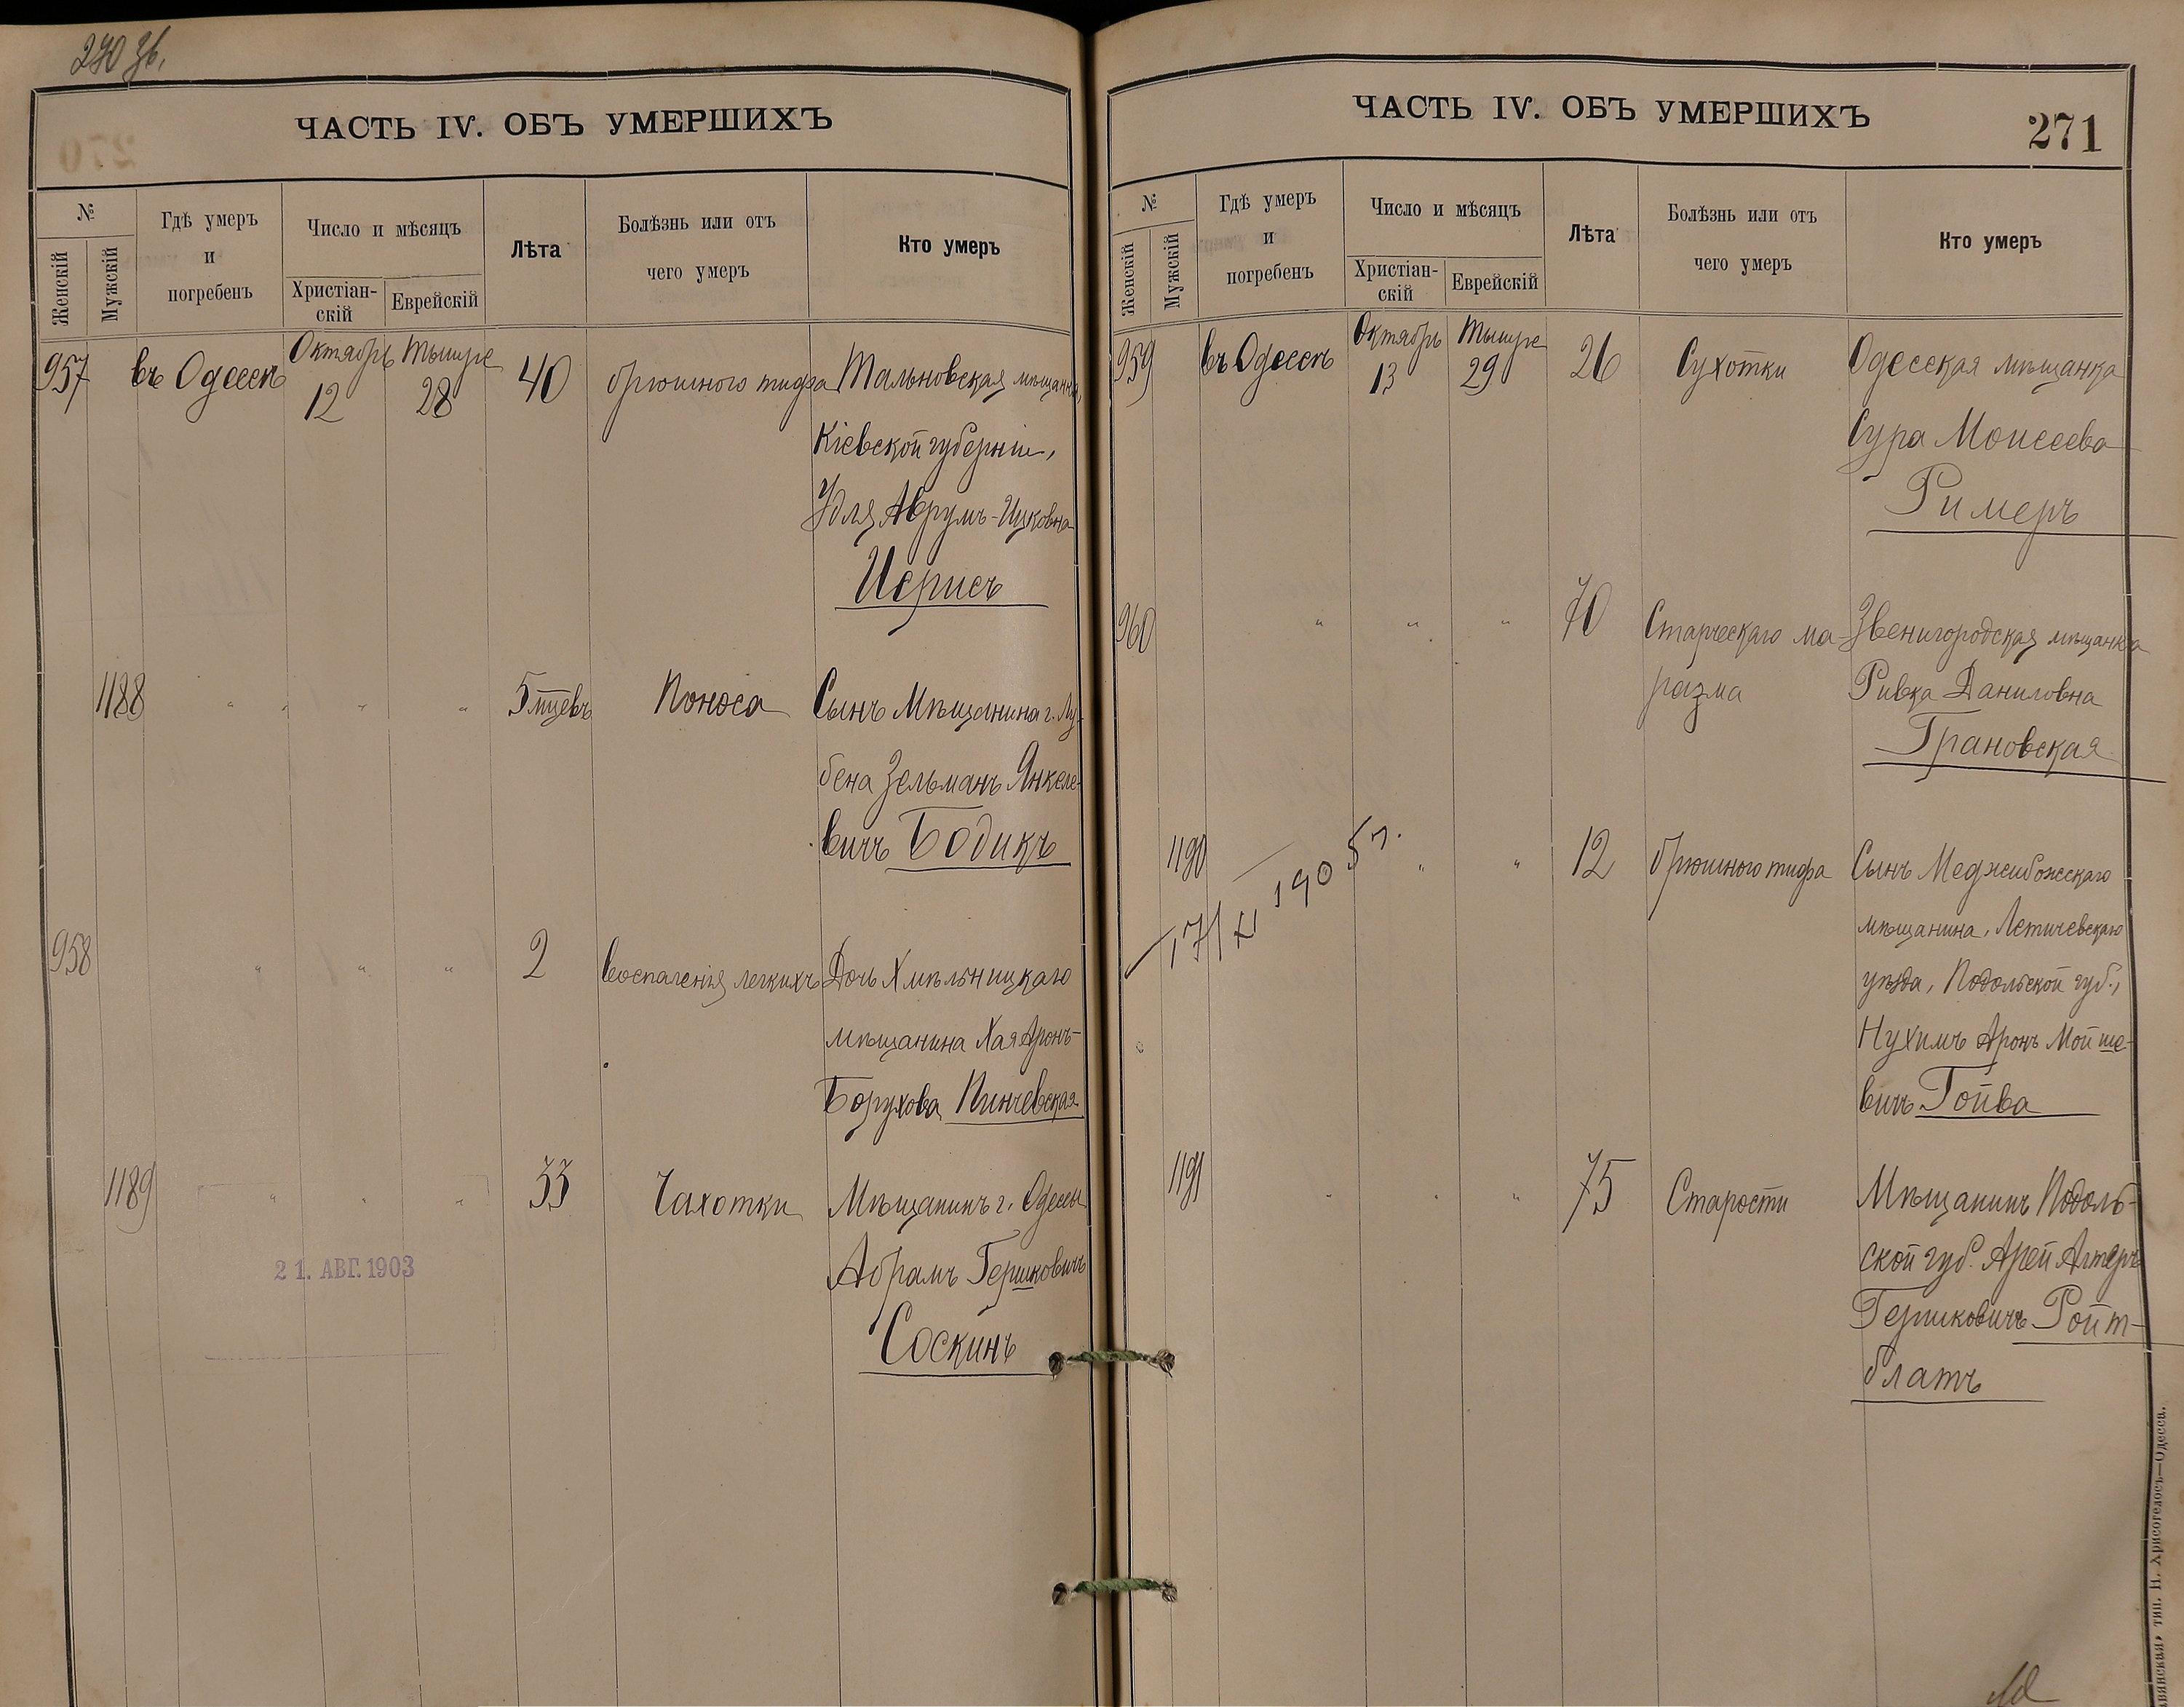 270 зв.
ЧАСТЬ IV. ОБЪ УМЕРШИХЪ
№
Женскій
Мужскій
Гдѣ умеръ
и
погребенъ
Число и мѣсяцъ
Христіан-
скій
Еврейскій
Лѣта
Болѣзнь или отъ
чего умеръ
Кто умеръ
957
въ Одессѣ
Октябрь
12
Тышре
28
40
брюшного тифа
Тальновская мѣщанка
Кіевской губерніи,
Удля Аврумъ-Ицковна
1188
" " " "
5 мцевъ
Поноса
Сынъ Мѣщанина г. Лу-
бена Зельманъ Янкеле-
вичъ Бодикъ
958
" " "
2
воспаленія легкихъ
Дочь Хмѣльницкаго
мѣщанина Хая Аронъ-
Борухова Пинчевская
1189
" " "
33
Чахотки
Мѣщанинъ г. Одессы
Абрамъ Гершковичъ
Соскинъ
21. АВГ. 1903
ЧАСТЬ IV. ОБЪ УМЕРШИХЪ
271
№
Женскій
Мужскій
Гдѣ умеръ
и
погребенъ
Число и мѣсяцъ
Христіан-
скій
Еврейскій
Лѣта
Болѣзнь или отъ
чего умеръ
Кто умеръ
959
въ Одессѣ
Октябрь
13
Тышре
29
26
Сухотки
Одесская мѣщанка
Сура Моисеева
Римеръ
960
" " "
70
Старческаго ма-
разма
Звенигородская мѣщанка
Ривка Даниловна
Грановская
1190
1905 г.
" "
12
брюшного тифа
Сынъ Меджибожскаго
мѣщанина, Летичевскаго
уѣзда, Подольской губ.,
Нухимъ Аронъ Мойше-
вичъ Гойва
1191
" " "
75
Старости
Мѣщанинъ Подоль-
ской губ. Арей Алтеръ
Гершковичъ Ройт-
блатъ
тип. И. Хрисогелосъ—Одесса.